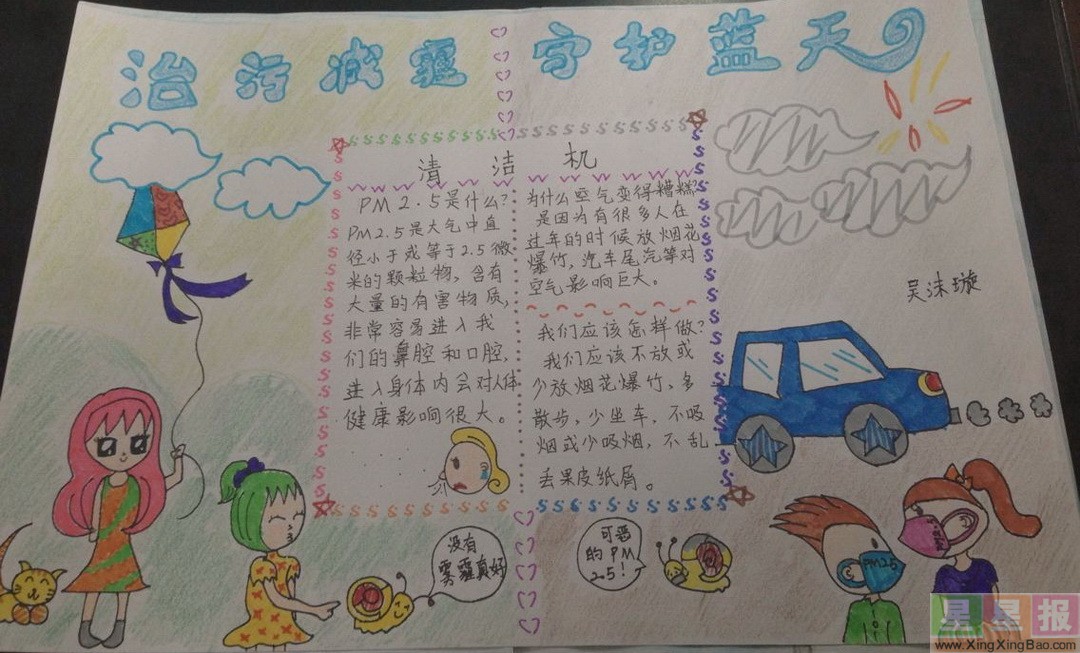 治污减霾 守护蓝天
清洁机
PM2.5是什么?
PM2.5是大气中直
径小于或等于2.5微
米的颗粒物,含有
大量的有害物质,
非常容易进入我
们的鼻腔和口腔,
进入身体内会对人体
健康影响很大。
为什么空气变得糟糕?
是因为有很多人在
过年的时候放烟花
爆竹,汽车尾汽等对
空气影响巨大。
我们应该怎样做?
我们应该不放或
少放烟花爆竹,多
散步,少坐车,不吸
烟或少吸烟,不乱
丢果皮纸屑。
吴沫璇
没有
雾霾真好
可恶
的PM
2.5!
PM2.5
星星报
www.XingXingBao.com